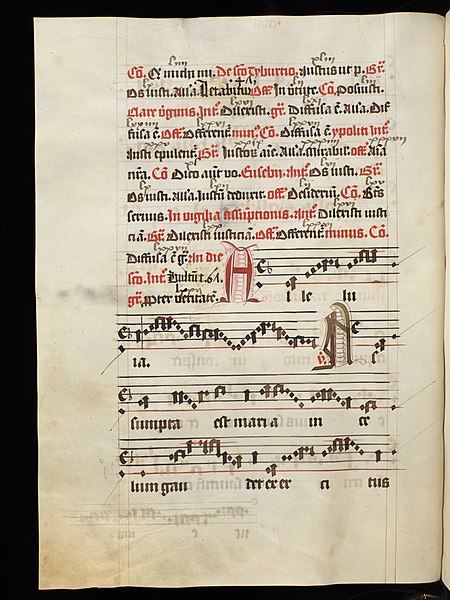 Co. Ex mitui mi. De sco Tyburtio. Iustus ut p. Gr.
Os iusti. Alla. Letabitur Off. In virtute. Co. Posuisti.
Clare virginis. Int. Dilexisti. gr. Diffusa e. Alla. Dif
fusa e. Off. Offerent minor. Co. Diffusa e. ypoliti. Int.
Iusti epulent. Gr. Iustor aie. Alla. Mirabilis. off. Aia
nra. Co. Dico aut vo. Eusebii. Int. Os iusti. Gr.
Os iusti. Alla. Iustum deduxit. off. Desiderium. Co. Beatus
servus. In vigilia assuptionis. Int. Dilexisti iusti
ciam. Gr. Dilexisti iusticiam. Off. Offerent minus. Co.
Diffusa e gr. In die
sco. Int.
gr. Propter veritate. Alle lu
ia. A
sumpta est maria in ce
lum gau det exer ci tus